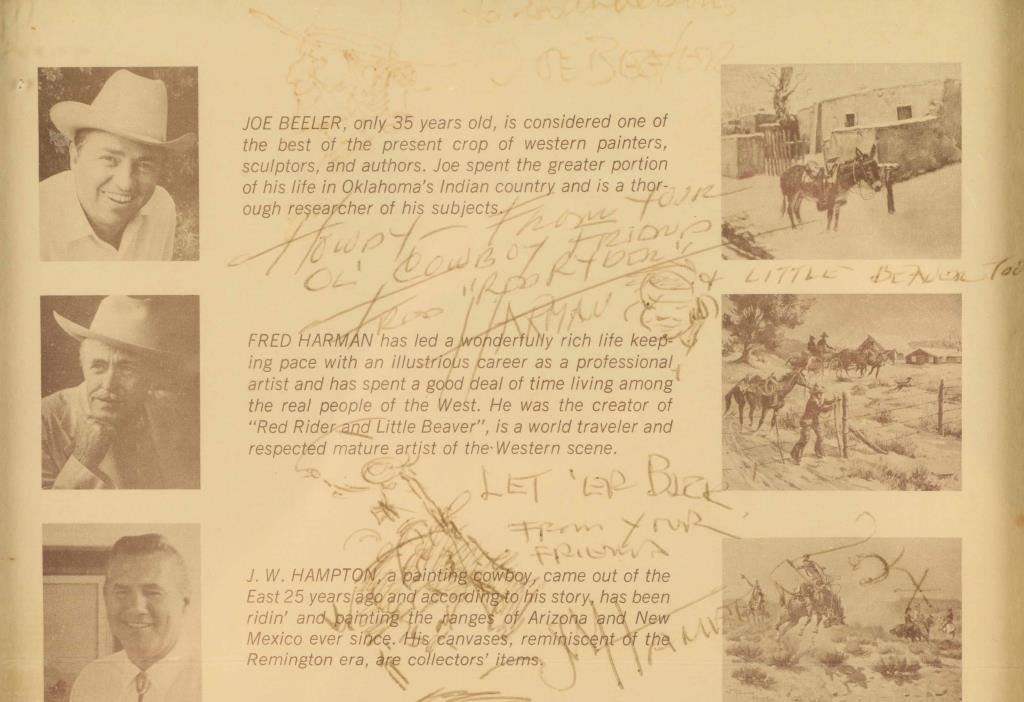 JOE BEELER
JOE BEELER, only 35 years old, is considered one of
the best of the present crop of western painters,
sculptors, and authors. Joe spent the greater portion
of his life in Oklahoma's Indian country and is a thor-
ough researcher of his subjects.
HOWDY - FROM YOUR
OL' COWBOY FRIEND
"RED RYDER"
& LITTLE BEAVER TOO
FRED HARMAN
FRED HARMAN has led a wonderfully rich life keep-
ing pace with an illustrious career as a professional
artist and has spent a good deal of time living among
the real people of the West. He was the creator of
"Red Rider and Little Beaver", is a world traveler and
respected mature artist of the Western scene.
LET 'ER BUCK
FROM YOUR
FRIEND
J. W. HAMPTON, a painting cowboy, came out of the
East 25 years ago and according to his story, has been
ridin' and painting the ranges of Arizona and New
Mexico ever since. His canvases, reminiscent of the
Remington era, are collectors' items.
JW HAMPTON